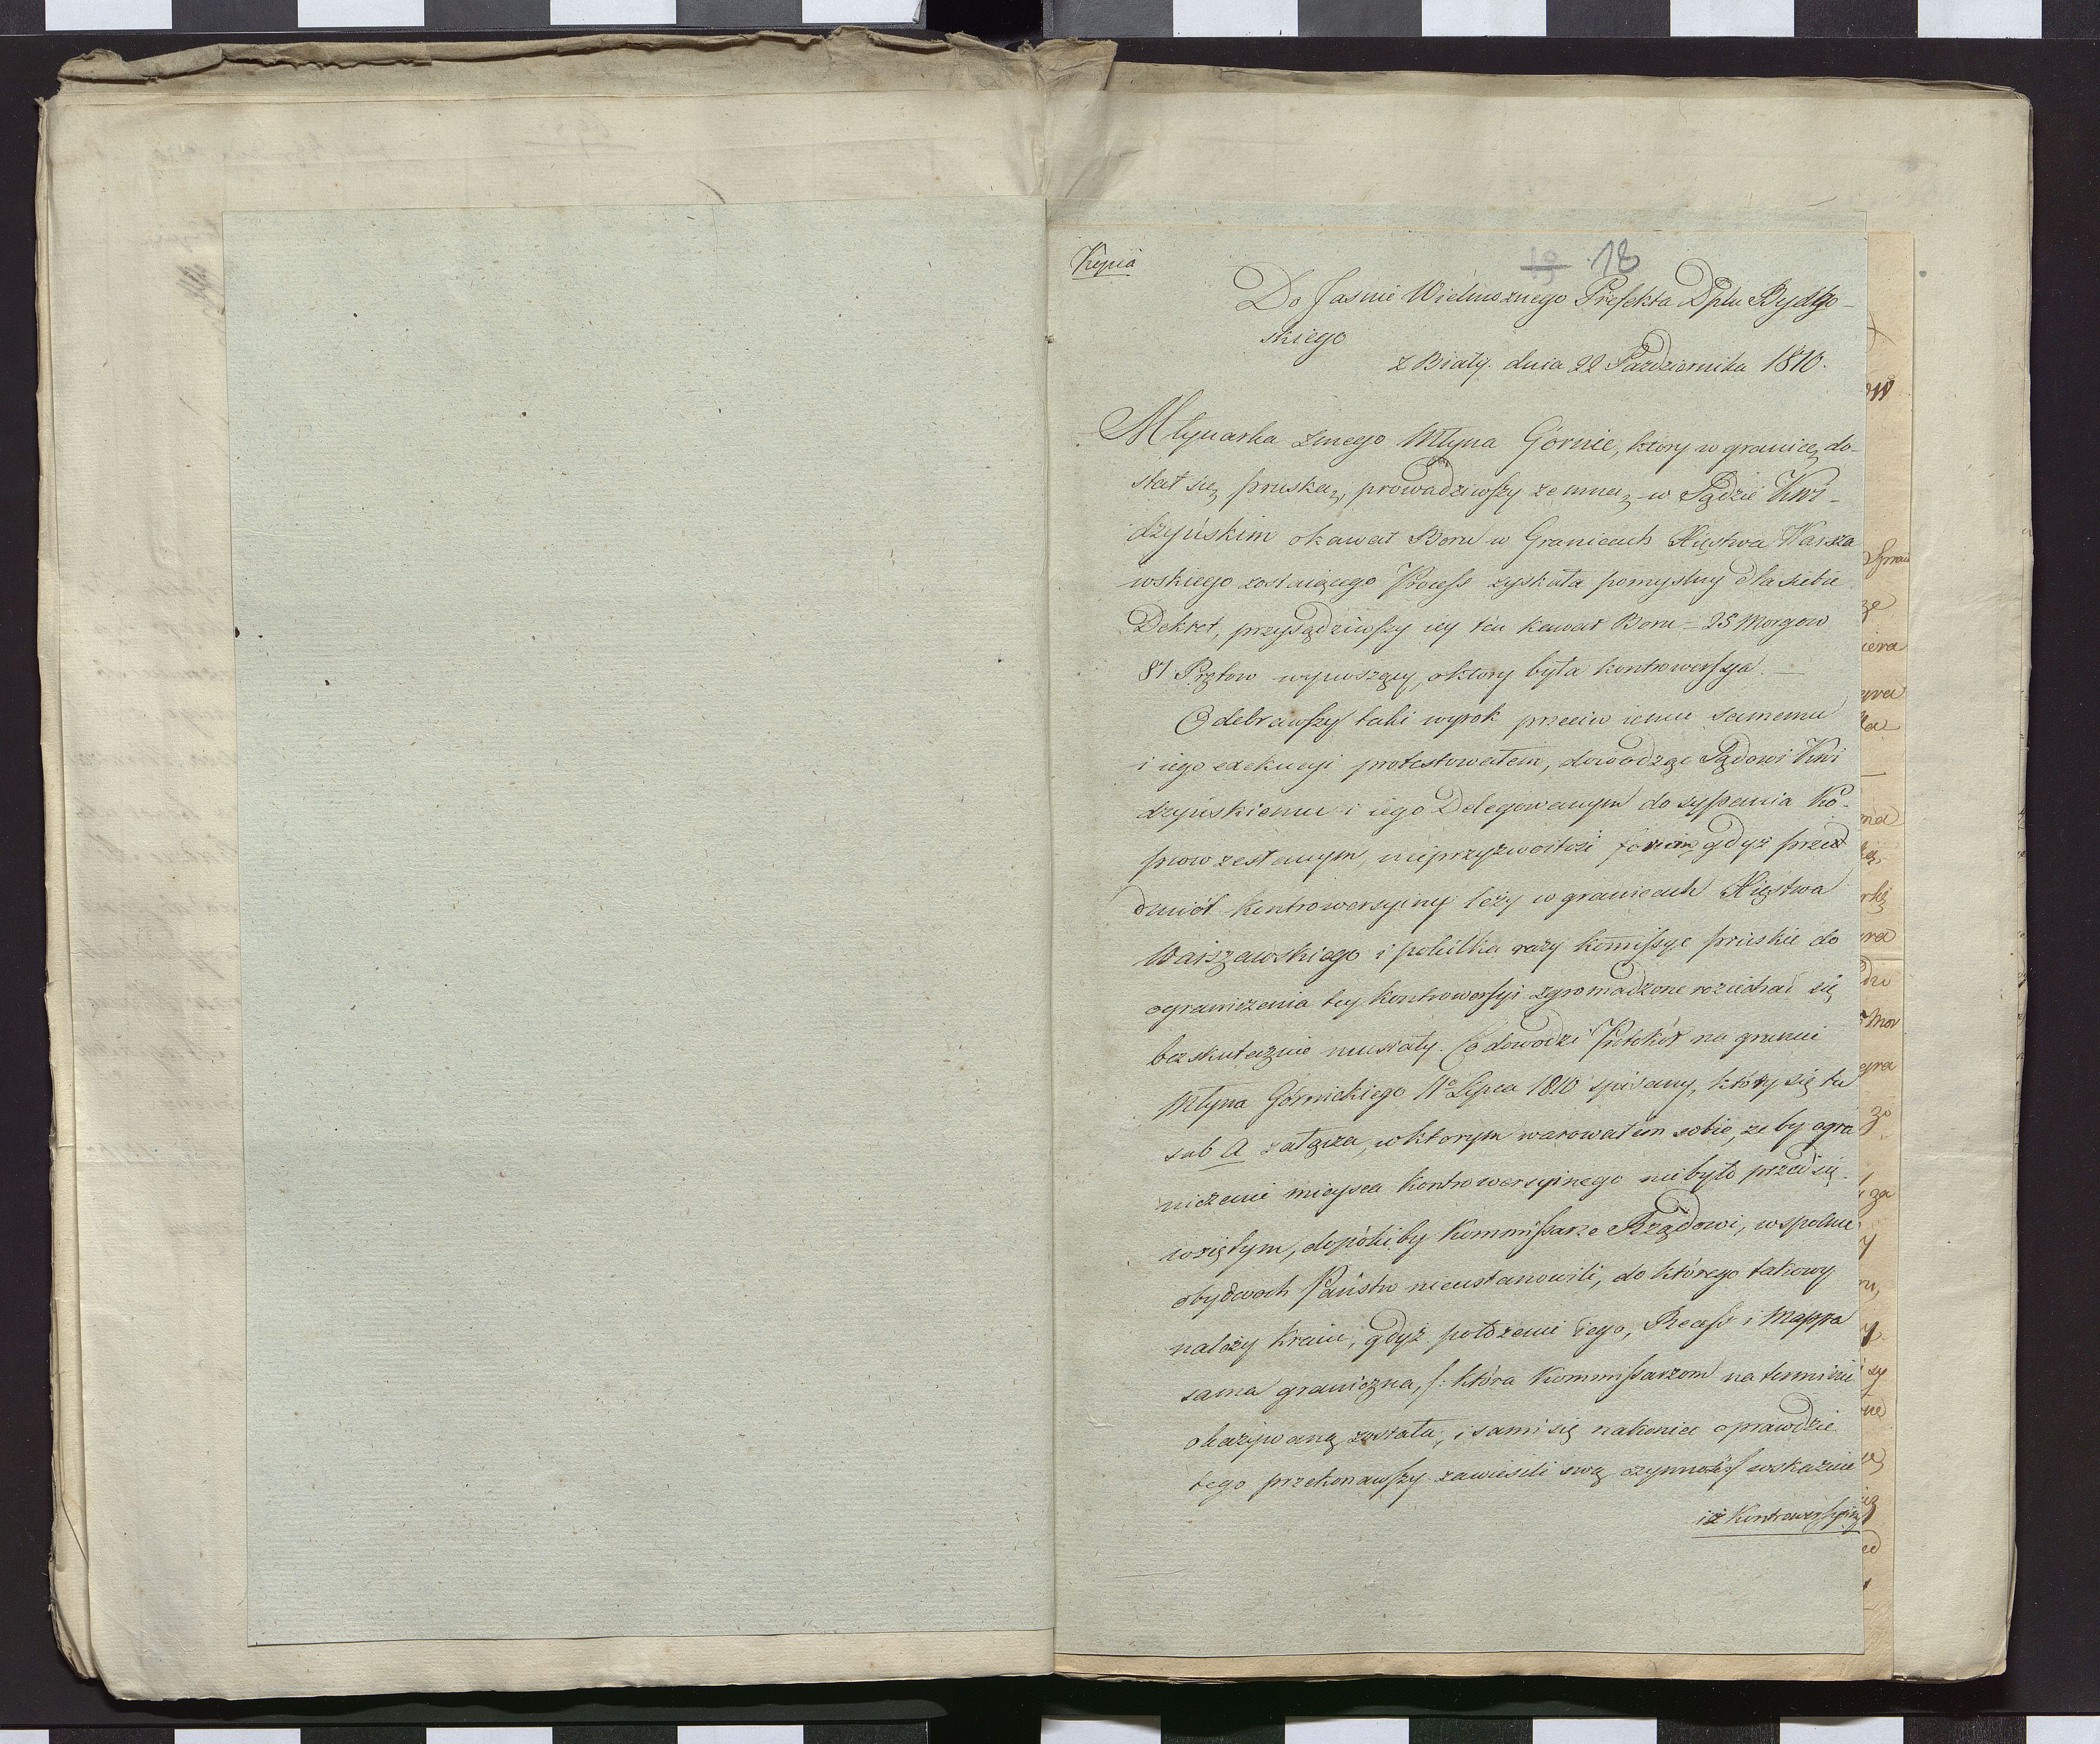 Kopia
19 18
Do Jasnie Wielmoznego Prefekta Dptu Bydgo-
skiego
z Białły. dnia 22 Pazdziernika 1810.
Młynarka zmego Młyna Górnic, ktory w granicę do-
stał się pruską, prowadziwszy zemną w Sądzie Kwi-
dzyńskim o kawał Boru w Granicach Xięstwa Warsza
wskiego zostaiącego Process zyskała pomyslny dla siebie
Dekret, przysądziwszy iey ten kawał Boru = 25 Morgow
81 Prętow wynoszący, o ktory była kontrowersya. —
Odebrawszy taki wyrok przeciw iemu samemu
i iego exekucyi protestowałem, dowodząc Sądowi Kwi
dzyńskiemu i iego Delegowanym do sypania Ko-
pcow zesłanym, nieprzyzwoitosć forum, gdyż przed
dmiót kontrowersyiny leży w granicach Xięstwa
Warszawskiego i pokilka razy kommissye pruskie do
ograniczenia tey kontrowersyi zgromadzone roziechać się
bezskutecznie musiały. Co dowodzi Protokół na gruncie
Młyna Górnickiego 11o Lipca 1810 spisany, który się tu
sub A załącza, w ktorym warowałem sobie, ze by ogra
niczenie mieysca kontrowersyinego nie było przedsię-
wziętym, dopókiby Kommissarze Rządowi, wspolnie
obydwoch Państw nieustanowili, do którego takowy
należy Kraiu, gdyż położenie iego, Recess i Mappa
sama graniczna, /: która Kommissarzom na terminie
okazywaną została, i sami się nakoniec o prawdzie
tego przekonawszy zawiesili swą czynność :/ wskazuie
iż Kontrowersyiny